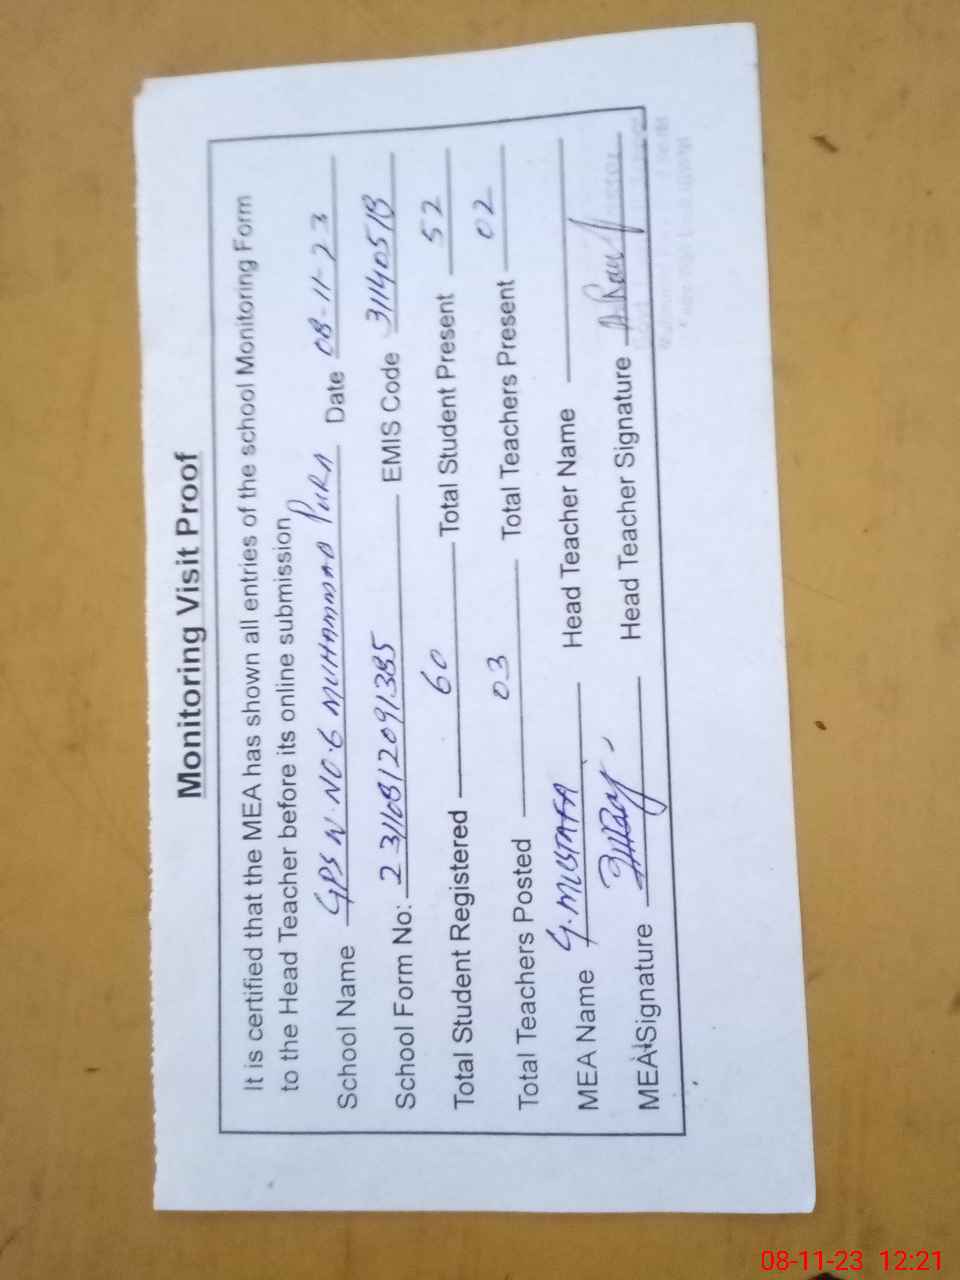 Monitoring Visit Proof
It is certified that the MEA has shown all entries of the school Monitoring Form
to the Head Teacher before its online submission
School Name GPS N.NO.6 MUHAMMAD PURA Date 08-11-23
School Form No: 23110812091385 EMIS Code 31140518
Total Student Registered 60 Total Student Present 52
Total Teachers Posted 03 Total Teachers Present 02
MEA Name G.MUSTAFA Head Teacher Name
MEA Signature Head Teacher Signature
08-11-23 12:21